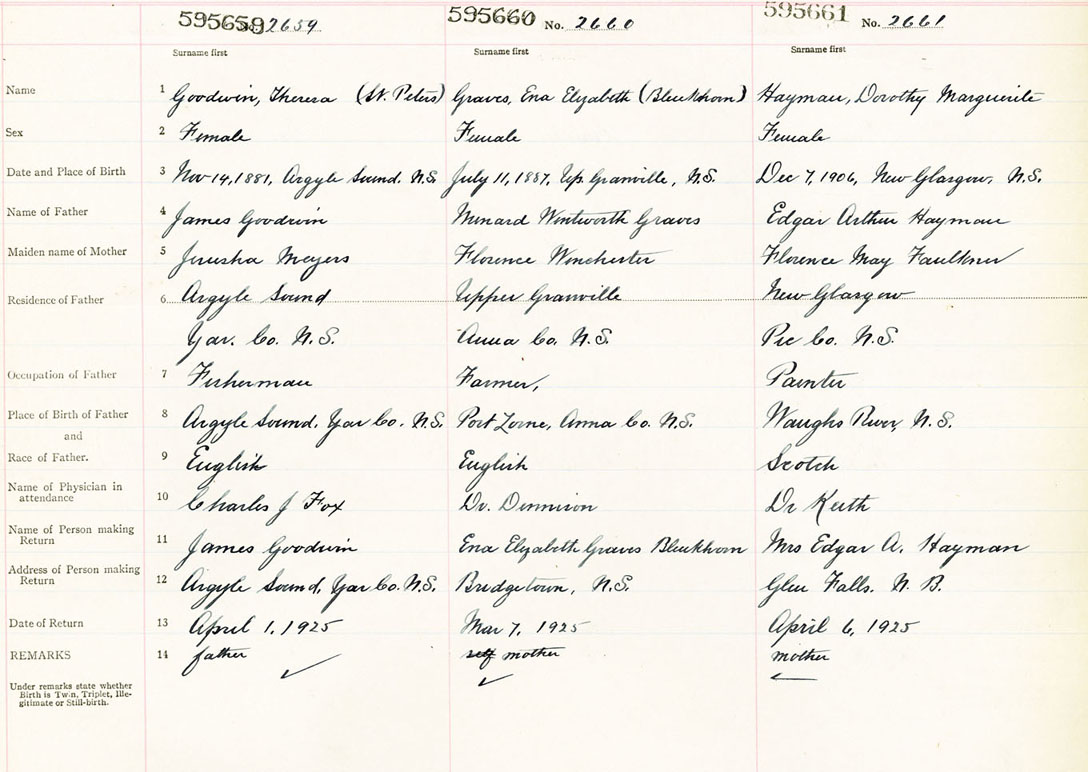 595659 No. 2659 595660 No. 2660 595661 No. 2661
Surname first Surname first Surname first
Name 1 Goodwin, Theresa (St. Peters) Graves, Ena Elizabeth (Bleukhorn) Hayman, Dorothy Marguerite
Sex 2 Female Female Female
Date and Place of Birth 3 Nov 14, 1881, Argyle Sound. N.S. July 11, 1887, Up. Granville, N.S. Dec 7, 1906, New Glasgow, N.S.
Name of Father 4 James Goodwin Menard Wentworth Graves Edgar Arthur Hayman
Maiden name of Mother 5 Jerusha Meyers Florence Winchester Florence May Faulkner
Residence of Father 6 Argyle Sound Upper Granville New Glasgow
Yar. Co. N.S. Anna Co. N.S. Pic Co. N.S.
Occupation of Father 7 Fisherman Farmer, Painter
Place of Birth of Father 8 Argyle Sound, Yar Co. N.S. Port Lorne, Anna Co. N.S. Waughs River, N.S.
and
Race of Father. 9 English English Scotch
Name of Physician in
attendance 10 Charles J Fox Dr. Dennison Dr Keith
Name of Person making
Return 11 James Goodwin Ena Elizabeth Graves Bleukhorn Mrs Edgar A. Hayman
Address of Person making
Return 12 Argyle Sound, Yar Co. N.S. Bridgetown, N.S. Glen Falls. N. B.
Date of Return 13 April 1, 1925 Mar 7, 1925 April 6, 1925
REMARKS 14 father self mother mother
Under remarks state whether
Birth is Twin, Triplet, Ille-
gitimate or Still-birth.